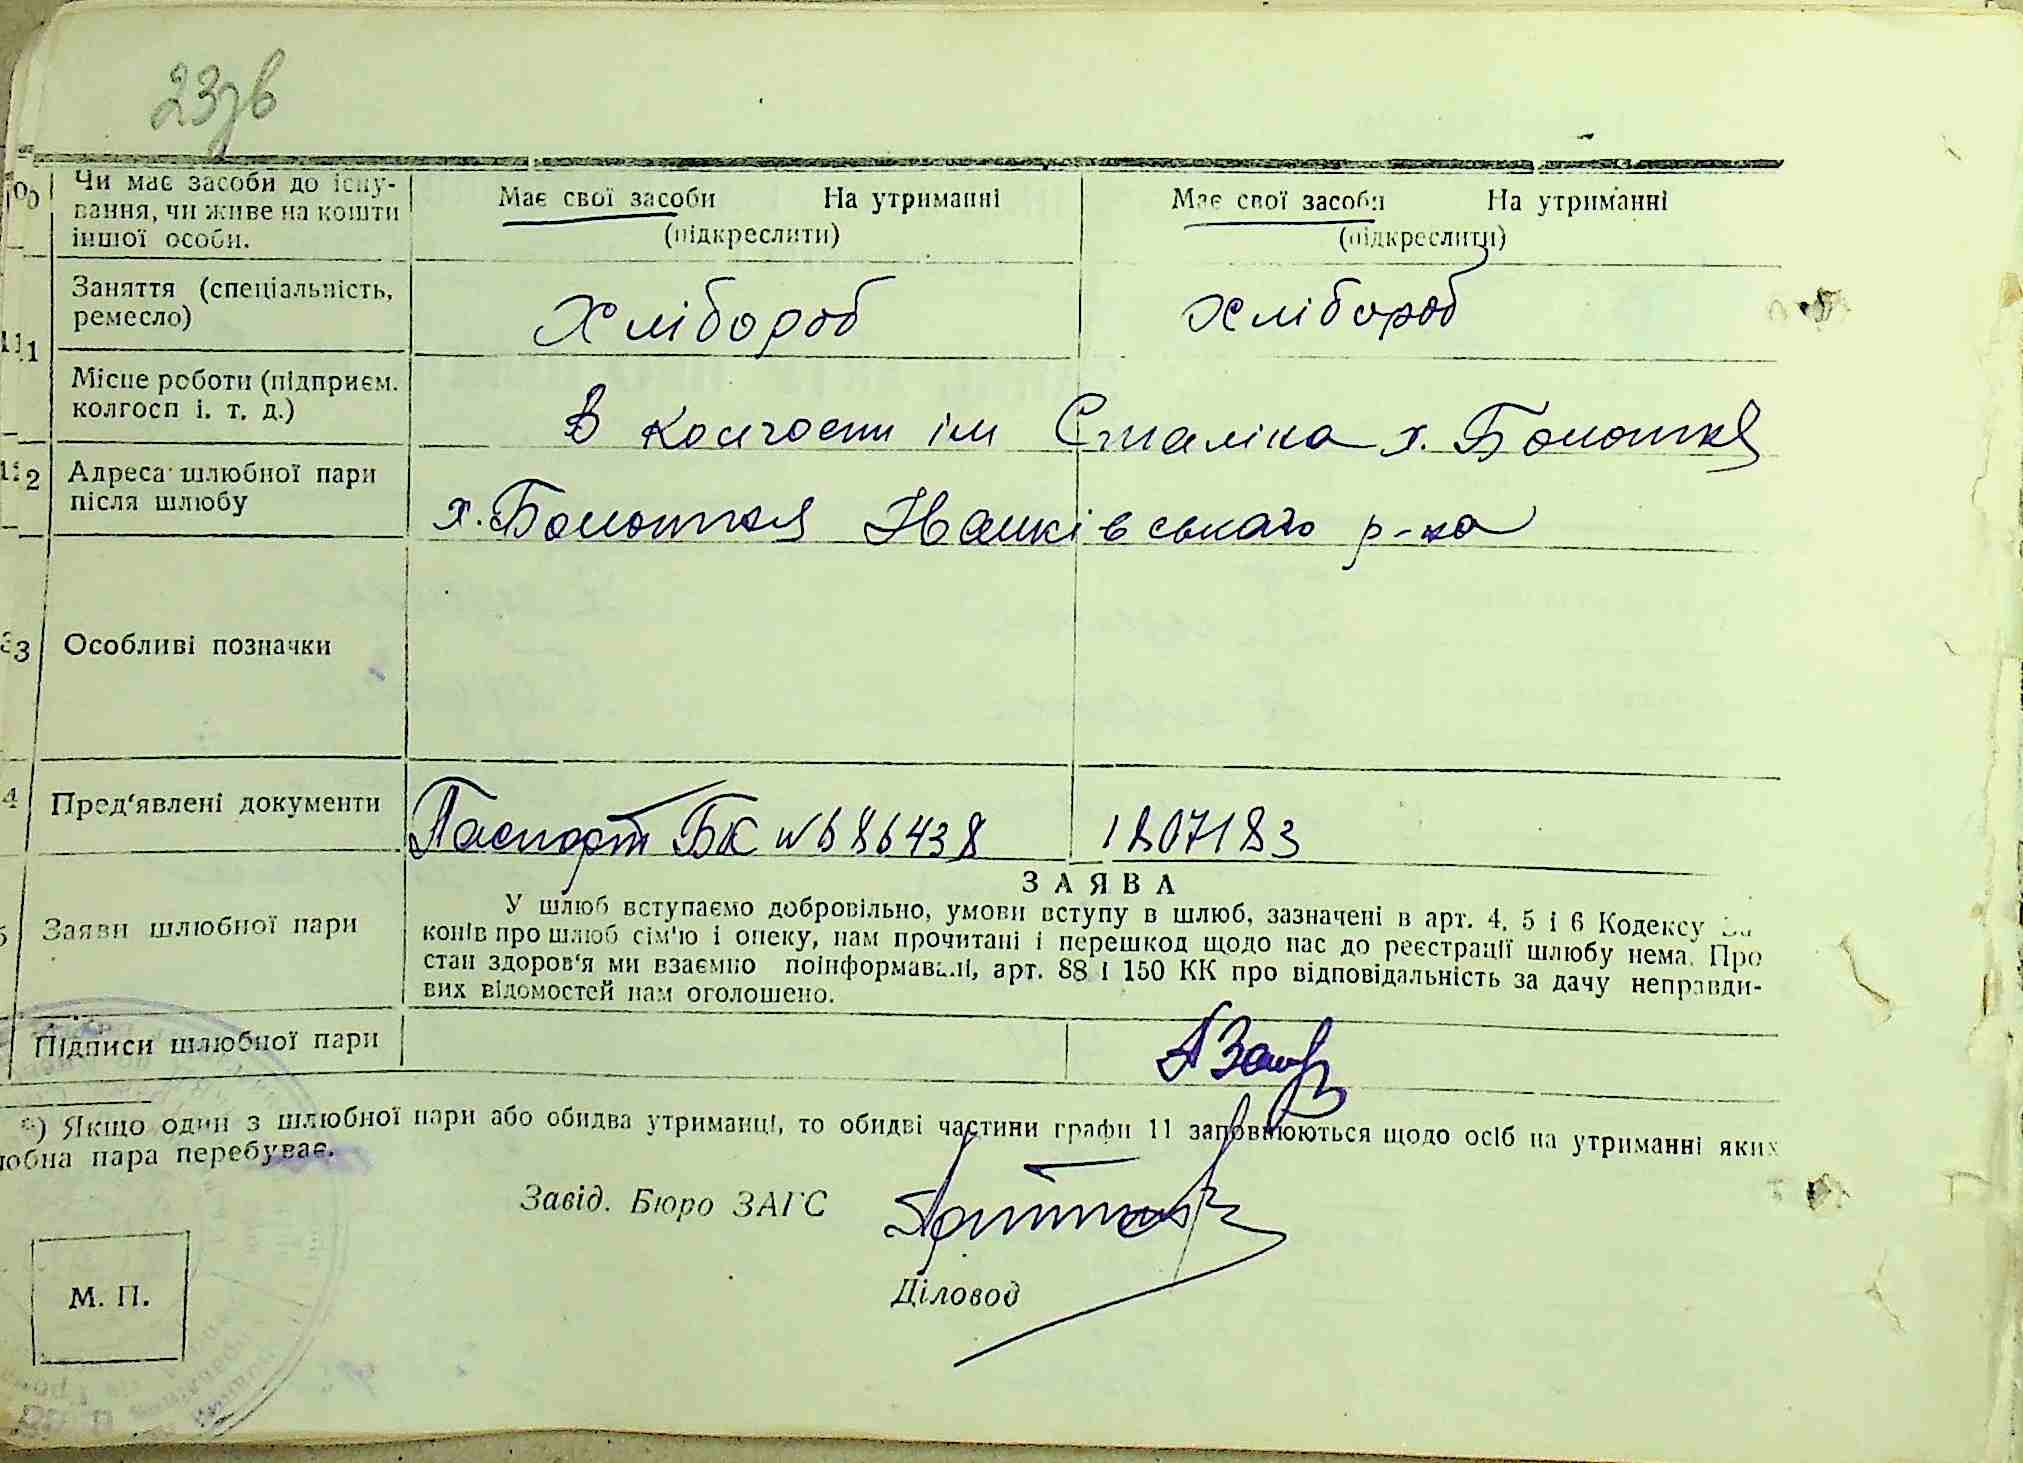 23зв
Чи має засоби до існу-
вання, чи живе на кошти
іншої особи.
Має свої засоби На утриманні
(підкреслити)
Має свої засоби На утриманні
(підкреслити)
11 Заняття (спеціальність,
ремесло)
Хлібороб
Хлібороб
Місце роботи (підприєм.
колгосп і. т. д.)
В колгоспі ім Сталіна х. Болотня
12 Адреса шлюбної пари
після шлюбу
х. Болотня Іванківського р-на
Особливі позначки
4 Пред'явлені документи
Паспорт БК № 686438
1807183
ЗАЯВА
5 Заяви шлюбної пари
У шлюб вступаємо добровільно, умови вступу в шлюб, зазначені в арт. 4, 5 і 6 Кодексу За
конів про шлюб сім'ю і опеку, нам прочитані і перешкод щодо нас до реєстрації шлюбу нема. Про
стан здоров'я ми взаємно поінформавалі, арт. 88 і 150 КК про відповідальність за дачу неправди-
вих відомостей нам оголошено.
Підписи шлюбної пари
*) Якщо один з шлюбної пари або обидва утриманці, то обидві частини графи 11 заповнюються щодо осіб на утриманні яких
юбна пара перебуває.
Завід. Бюро ЗАГС
Діловод
М. П.